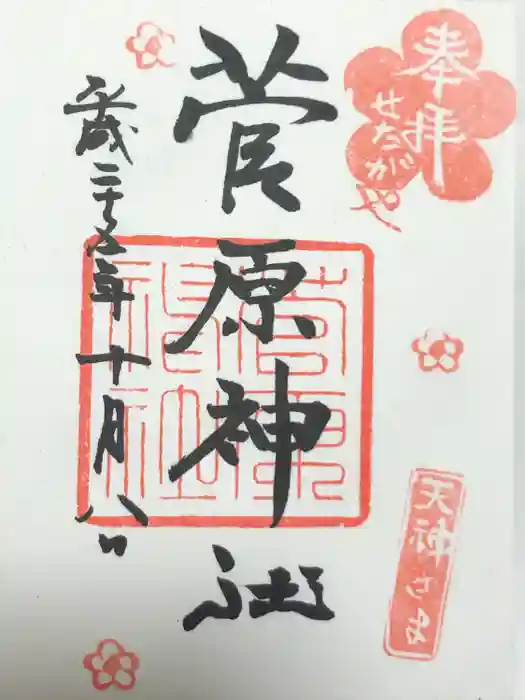 奉拝
せたがや
菅原神社
平成二十五年十月八日
菅原神社
天神さま